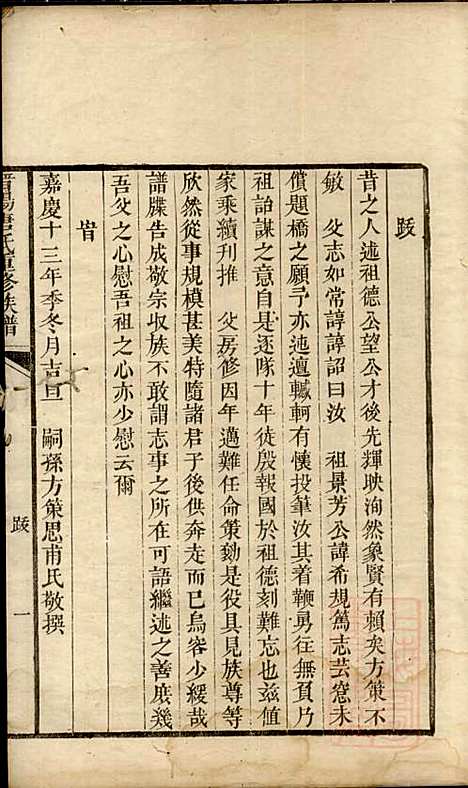 跋
昔之人述祖德公望公才後先輝映洵然象賢有賴矣方策不
敏 父志如常諄諄詔曰汝 祖景芳公諱希規篤志芸窓未
償題橋之願予亦迍邅轗軻有懷投筆汝其着鞭勇往無負乃
祖詒謀之意自是逐隊十年徒殷報國於祖德刻難忘也兹値
家乘續刊推 父房修因年邁難任命策勷是役具見族尊等
欣然從事規模甚美特隨諸君子後供奔走而已烏容少緩哉
譜牒告成敬宗收族不敢謂志事之所在可語繼述之善庻幾
吾父之心慰吾祖之心亦少慰云爾
旹
嘉慶十三年季冬月吉旦 嗣孫方策思甫氏敬撰
晉陽唐氏重修族譜
跋 一